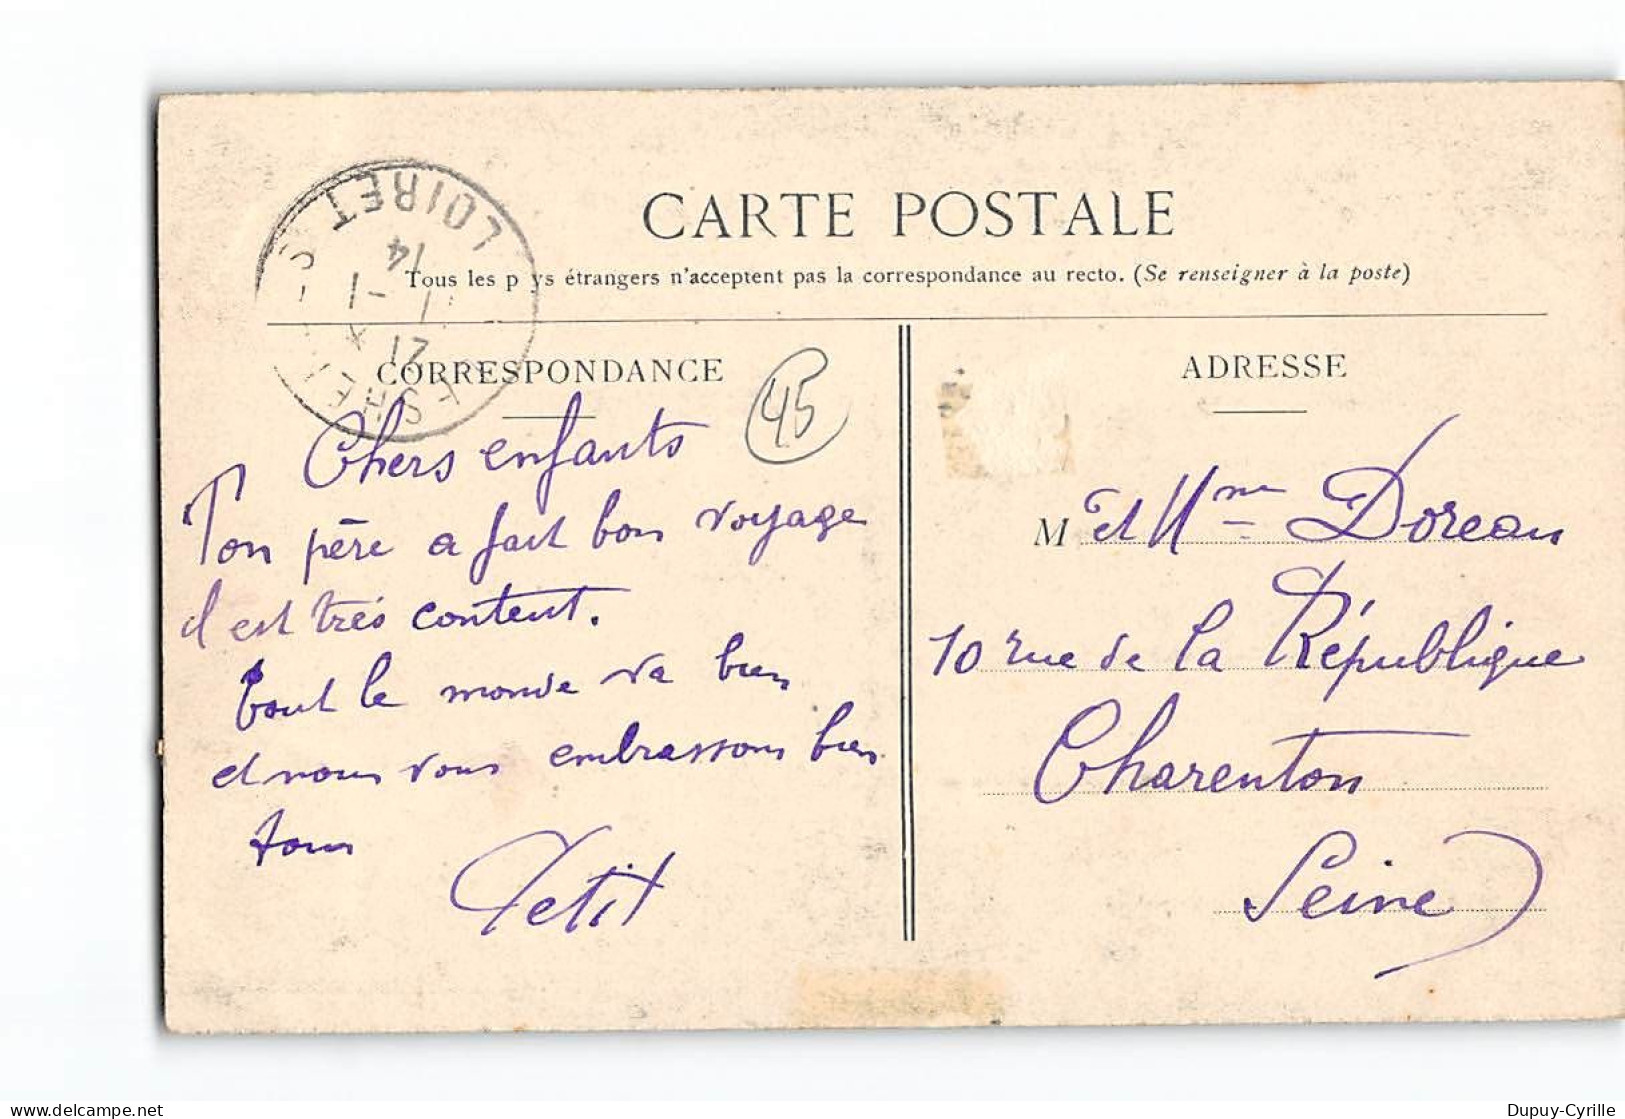 CARTE POSTALE
Tous les p ys étrangers n'acceptent pas la correspondance au recto. (Se renseigner à la poste)
LOIRET
14
1-1
21
CORRESPONDANCE
45
Chers enfants
Ton père a fait bon voyage
il est très content.
tout le monde va bien
et nous vous embrassons bien
tous
Petit
ADRESSE
M et Mme Doreau
10 rue de la République
Charenton
Seine
Dupuy-Cyrille